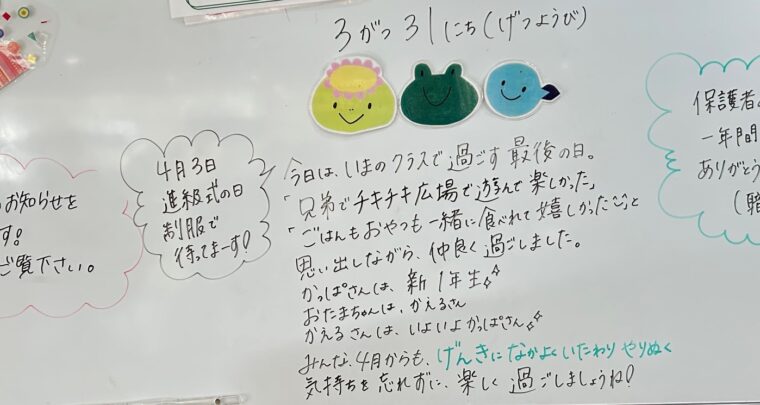 3がつ31にち(げつようび)
4月3日
進級式の日
制服で
待ってまーす!
お知らせを
す!
ご覧下さい。
今日は、いまのクラスで過ごす最後の日。
「兄弟でチキチキ広場で遊んで楽しかった」
「ごはんもおやつも一緒に食べれて嬉しかった」と
思い出しながら、仲良く過ごしました。
かっぱさんは、新1年生
おたまちゃんは、かえるさん
かえるさんは、いよいよかっぱさん
みんな、4月からも、げんきになかよくいたわりやりぬく
気持ちを忘れずに、楽しく過ごしましょうね!
保護者
一年間
ありがとう
(職